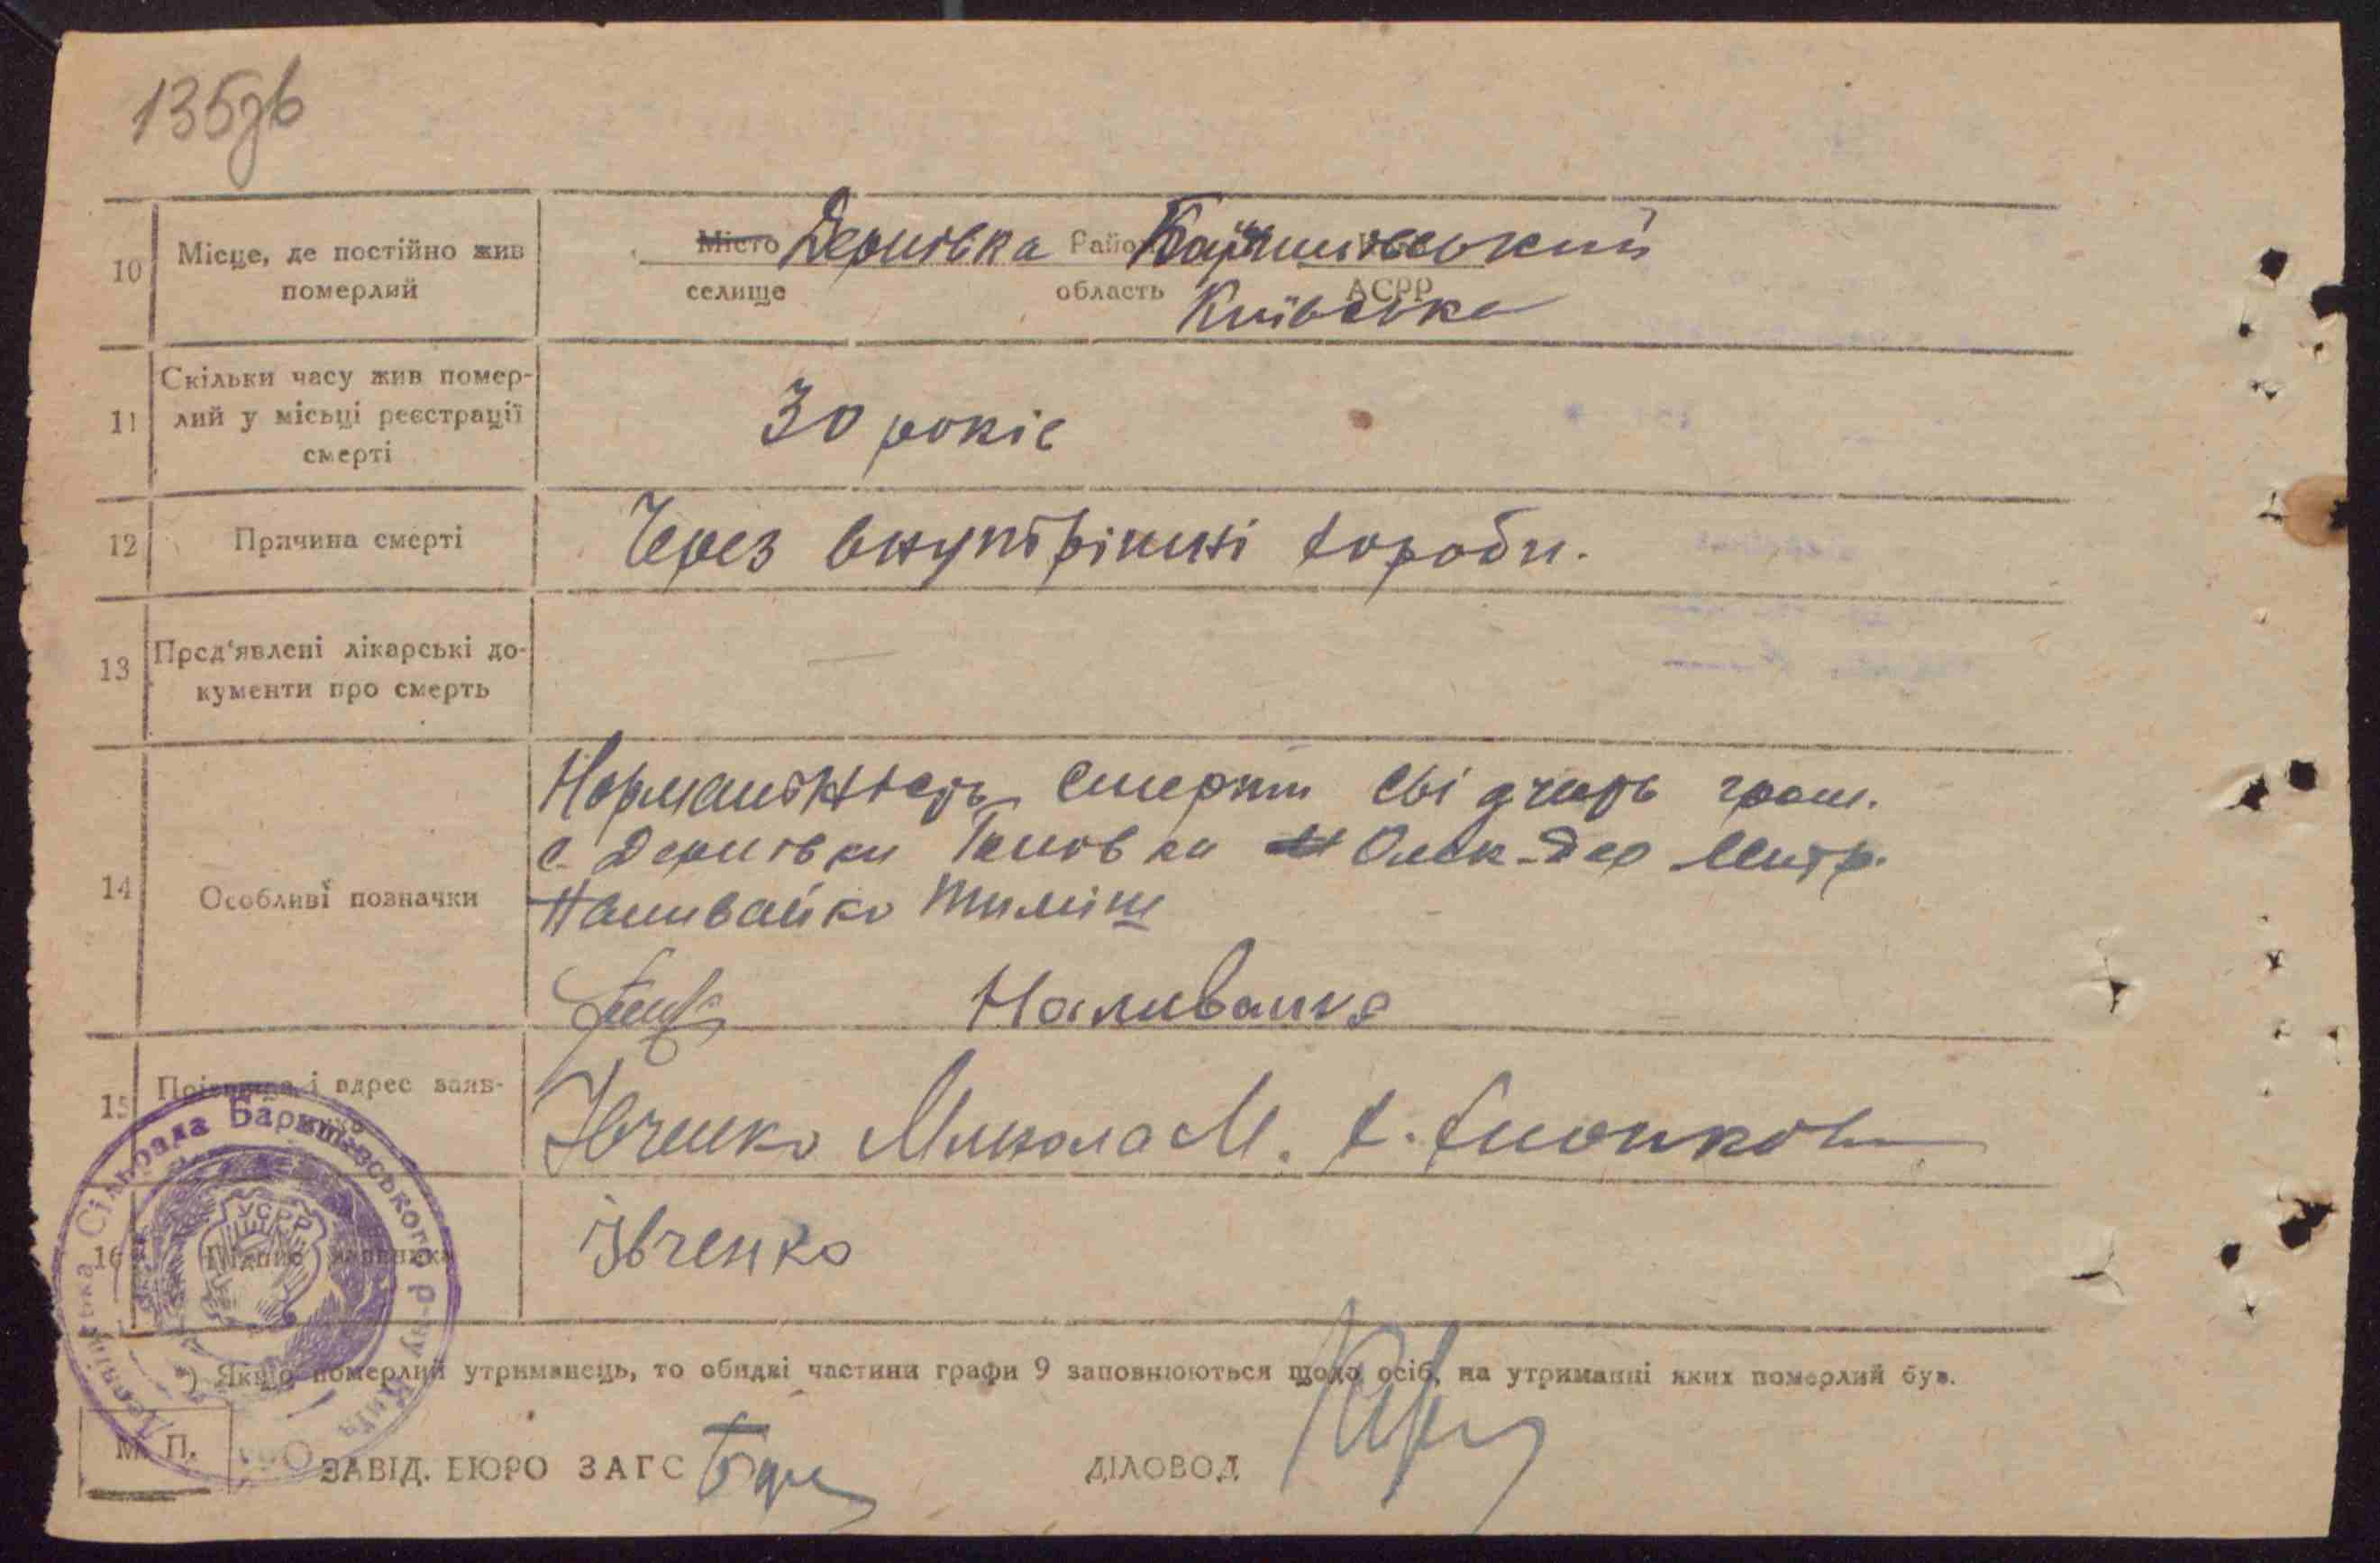 135зв
10 Місце, де постійно жив померлий
Місто Дернівка Район Баришівський
селище область АСРР
Київська
11 Скільки часу жив помер-
лий у місьці реєстрації
смерті
30 років
12 Причина смерті
Через внутрішні хороби.
13 Пред'явлені лікарські до-
кументи про смерть
14 Особливі позначки
Нормальність смерти свідчать гром.
с. Дернівки Олек-дер Митр.
Наливайко Тиміш
Наливайко
15 і адрес заяв-
Івченко Микола М. х.
16 Підпис заявника
Івченко
*) Якщо померлий утриманець, то обидві частини графи 9 заповнюються щодо осіб, на утриманні яких померлий був.
М. П. ЗАВІД. БЮРО ЗАГС ДІЛОВОД
Дернівська Сільрада Баришівського р-ну
УСРР